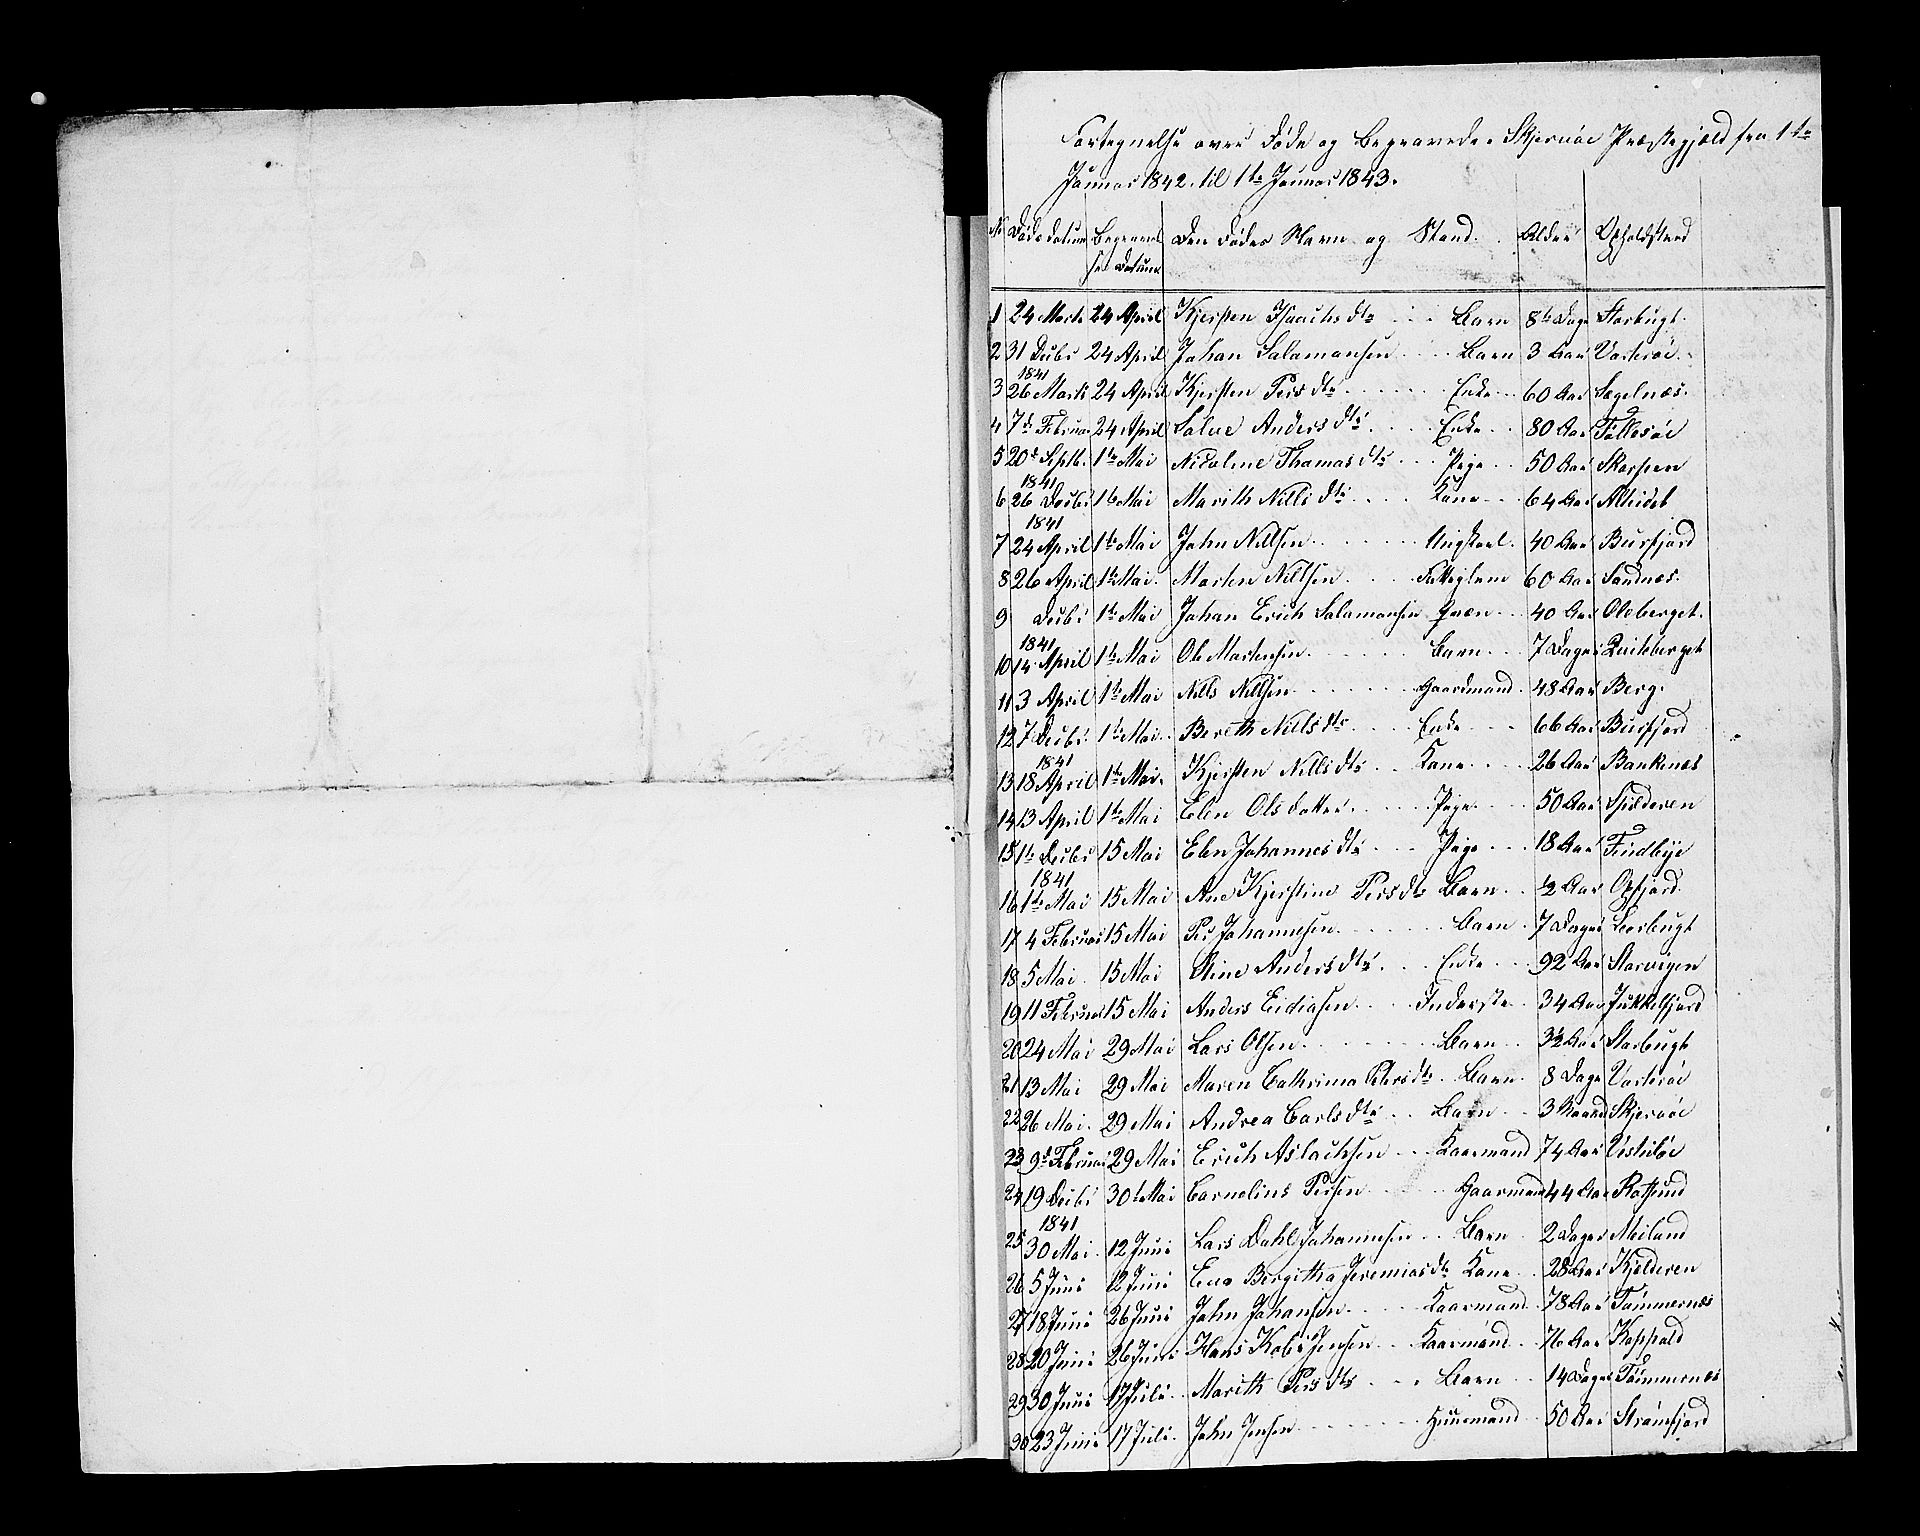 Fortegnelse over Døde og Begravede i Skjervøe Præstegjæld fra 1te
Januar 1842 til 1te Januar 1843.
No Døds datum Begravelses Datum Den Dødes Navn og Stand. Alder Opholdsted
1 24 Marts 24 April Kjersten Isaachs dtr Barn 8te Dage Storbugt.
2 31 Decbr 1841 24 April Johan Salamonsen Barn 3 Aar Vorterøe.
3 26 Marts 24 April Kjersten Pers dtr Enke 60 Aar Segelnæs.
4 7de Februar 24 April Salue Anders dtr Enke 80 Aar Follesøe
5 20de Septbr. 1841 1te Mai Nicoline Thomas dtr Pige 50 Aar Skorpen
6 26 Decbr 1841 16 Mai Marith Nills dtr Kone 64 Aar Alteidet
7 24 April 1te Mai John Nillsen Ungkarl 40 Aar Burfjord
8 26 April 1te Mai. Morten Nillsen Fattiglem 60 Aar Sandnæs.
9 Decbr 1841 1te Mai Johan Erich Salamonsen Qvæn 40 Aar Oleberget.
10 14 April 1te Mai Ole Mortensen Barn 7 Dage Reichberget
11 3 April 1te Mai Nills Nillsen Gaardmand 48 Aar Berg.
12 7 Decbr. 1841 1te Mai Bereth Nills dtr Enke 66 Aar Burfjord
13 18 April 1te Mai. Kjersten Nills dtr Kone 26 Aar Bankenæs
14 13 April 1te Mai Elen Ols datter Pige 50 Aar Spilderen
15 1te Decbr 1841 15 Mai Elen Johannes dtr Pige 18 Aar Findbye
16 1te Mai 15 Mai Ane Kjerstine Pers dtr Barn ½ Aar Oxfjord.
17 4 Februar 15 Mai Per Johannesen Barn 7 Dage Leerbugt
18 5 Mai 15 Mai Stine Anders dtr Enke 92 Aar Storvigen
19 11 Februar 15 Mai Anders Eidiasen Inderste 34 Aar Jøkkelfjord
20 24 Mai 29 Mai Lars Olsen Barn 3½ Aar Storbugt
21 13 Mai 29 Mai Maren Cathrina Peters dtr Barn 8 Dage Vorterøe
22 26 Mai. 29 Mai Andrea Carls dtr Barn 3 Maaned Skjervøe
23 9de Februar 29 Mai Erich Aslachsen Kaarmand 74 Aar Vestidøe
24 19 Decbr 1841 30te Mai Cornelius Persen Gaarmand 44 Aar Rotsund
25 30 Mai. 12 Juni Lars Dahl Johannesen Barn 2 Dage Meiland
26 5 Juni 12 Juni Eva Bergitha Jeremias dtr Kone 28 Aar Kjelderen
27 18 Juni 26 Juni John Johansen Kaarmand 78 Aar Tømmernæs
28 20 Juni 26 Juni Hans Kobr Jensen Kaarmand 76 Aar Koppald
29 30 Juni 17 Juli Marith Pers dtr Barn 14 Dage Tømmernæs
30 23 Juni 17 Juli. John Jensen Huusmand 50 Aar Strømfjord